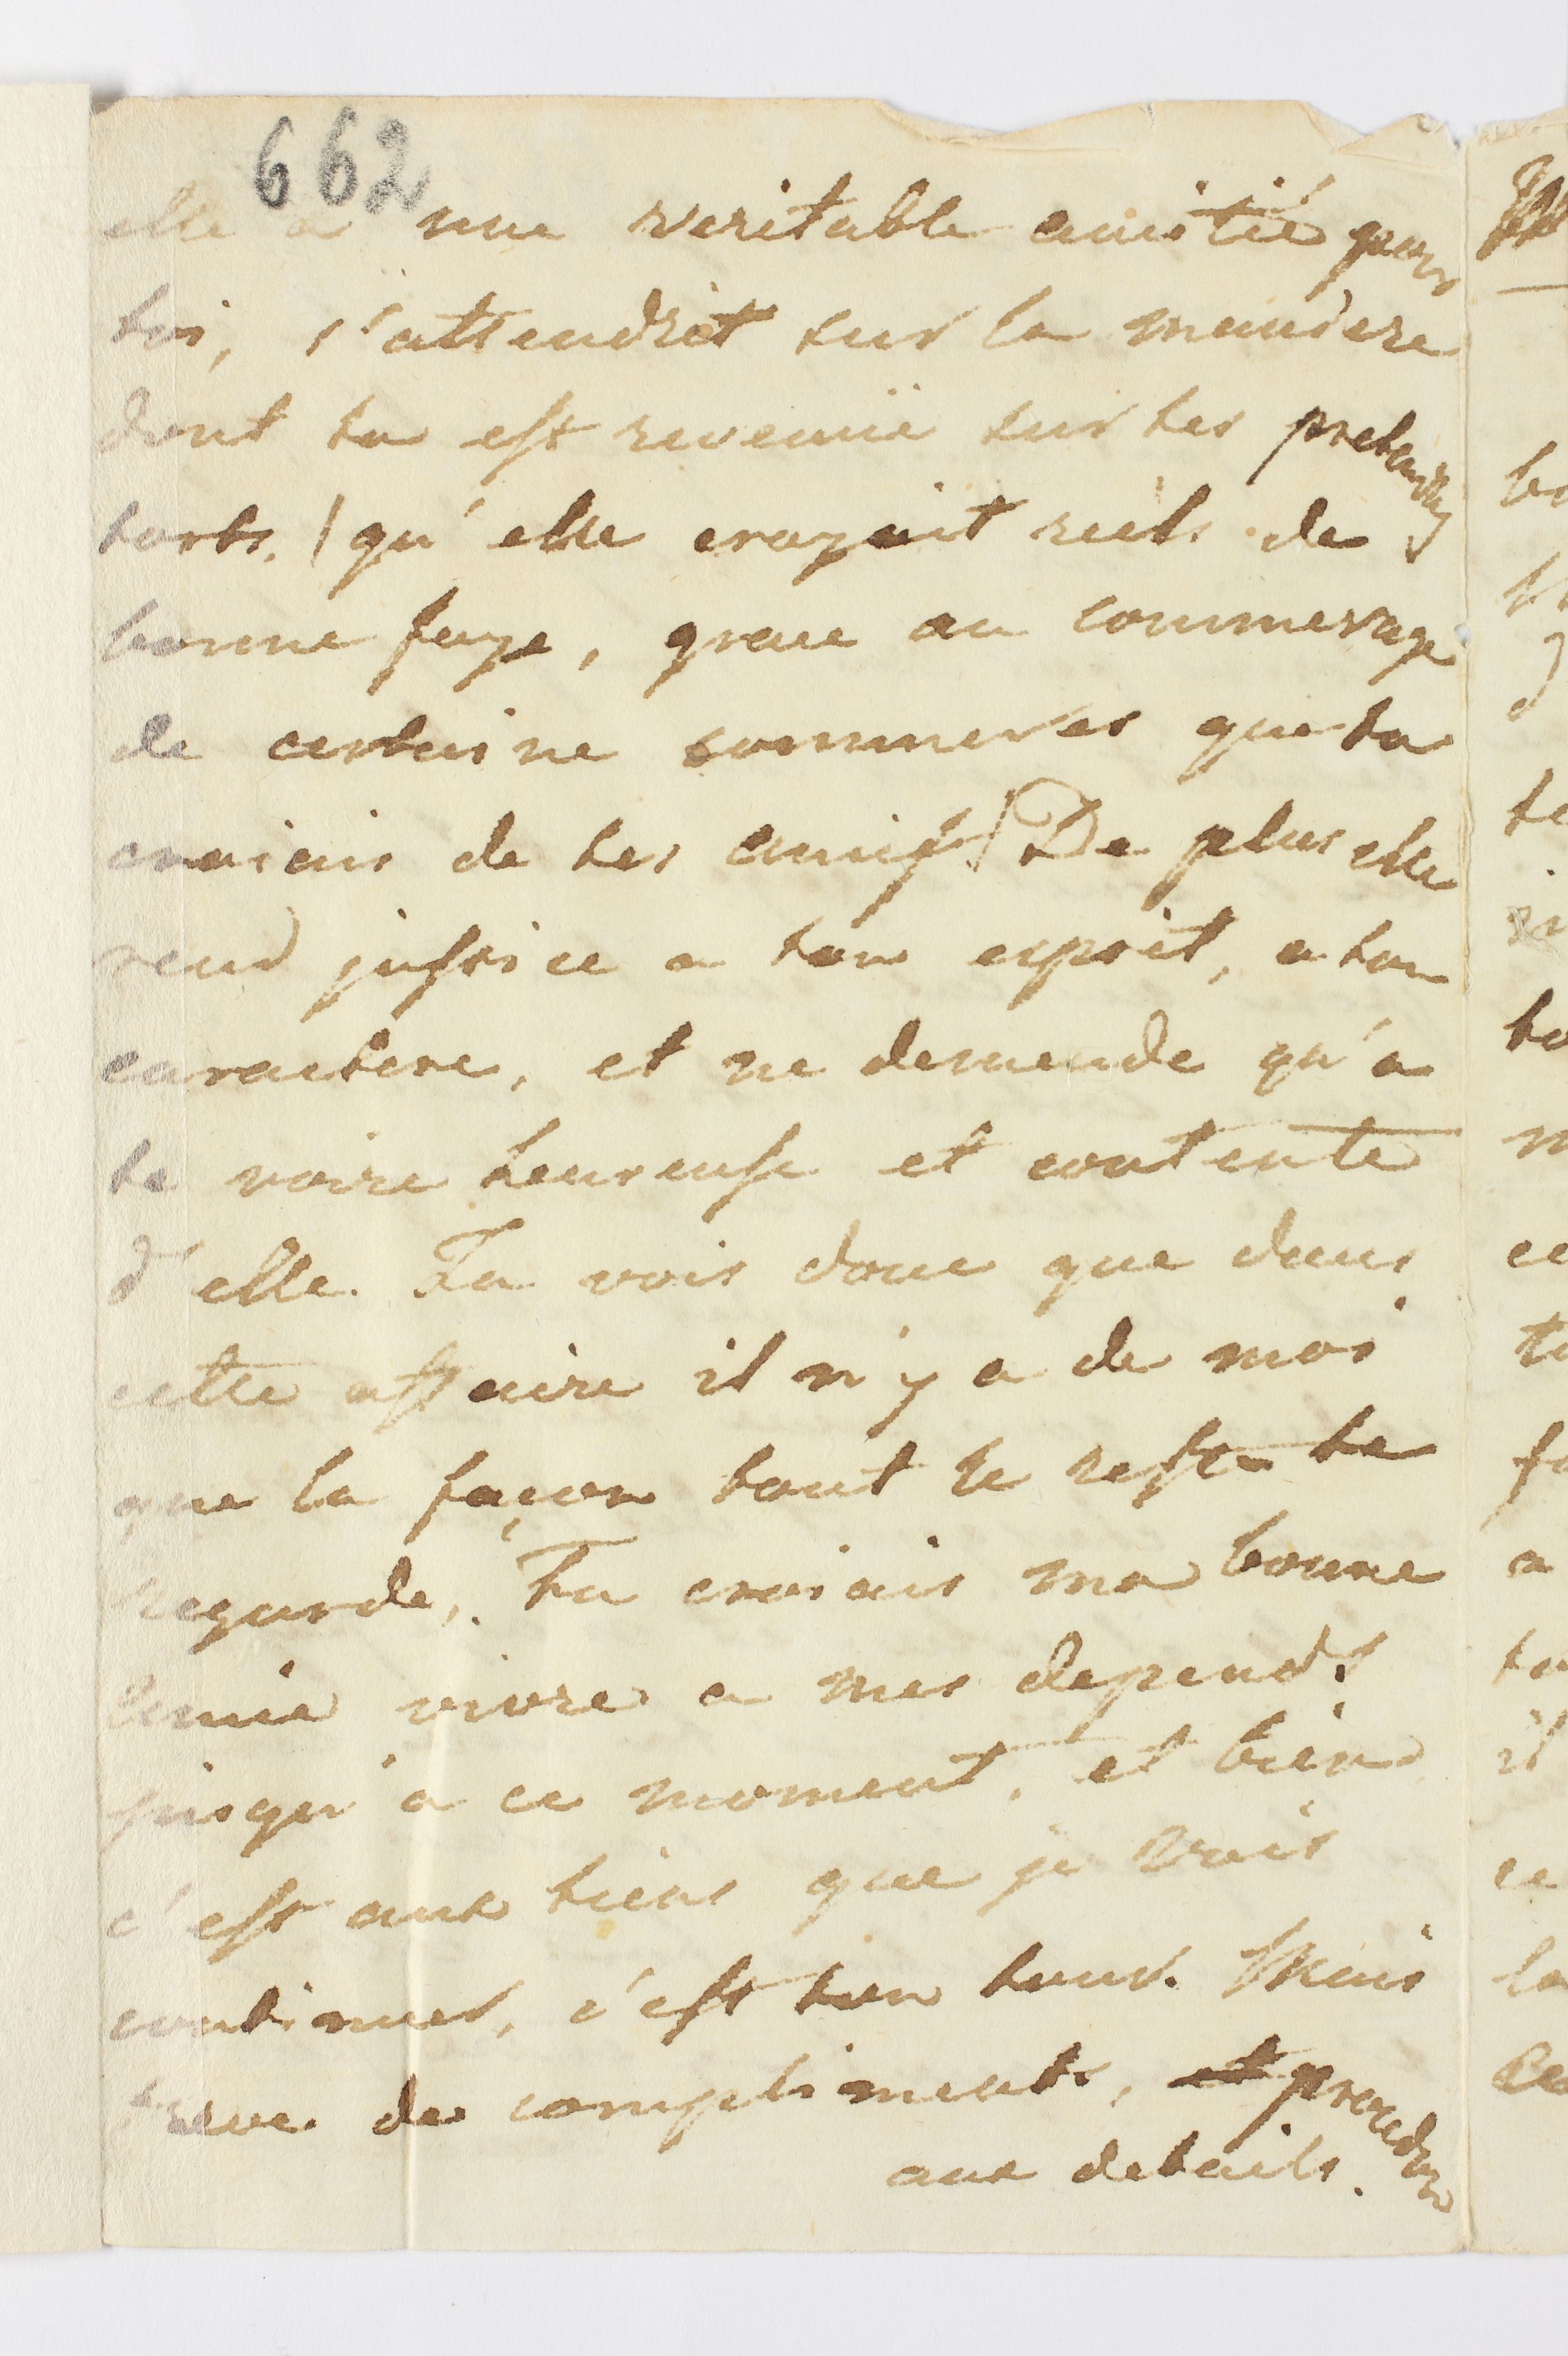 662
elle a une veritable amitié pour
toi, s'attendrit sur la maniere
dont tu est revenüe sur tes pretendus
torts, (qu'elle croyait réels de
bonne foye, grace au commerage
de certaine commeres que tu
croiais de tes amies) De plus elle
rend justice a ton esprit, a ton
caractere, et ne demende qu'a
te voire heureuse et contente
d'elle. Tu vois donc que dans
cette affaire il n'y a de moi
que la façon tout le reste te
regarde,. Tu croiais ma bonne
amie vivre a mes depends
jusqu'a ce moment, et bien
c'est aux tiens que je vais
continuer, c'est ton tour. Mais
treve de compliments, et procedons
aux details.